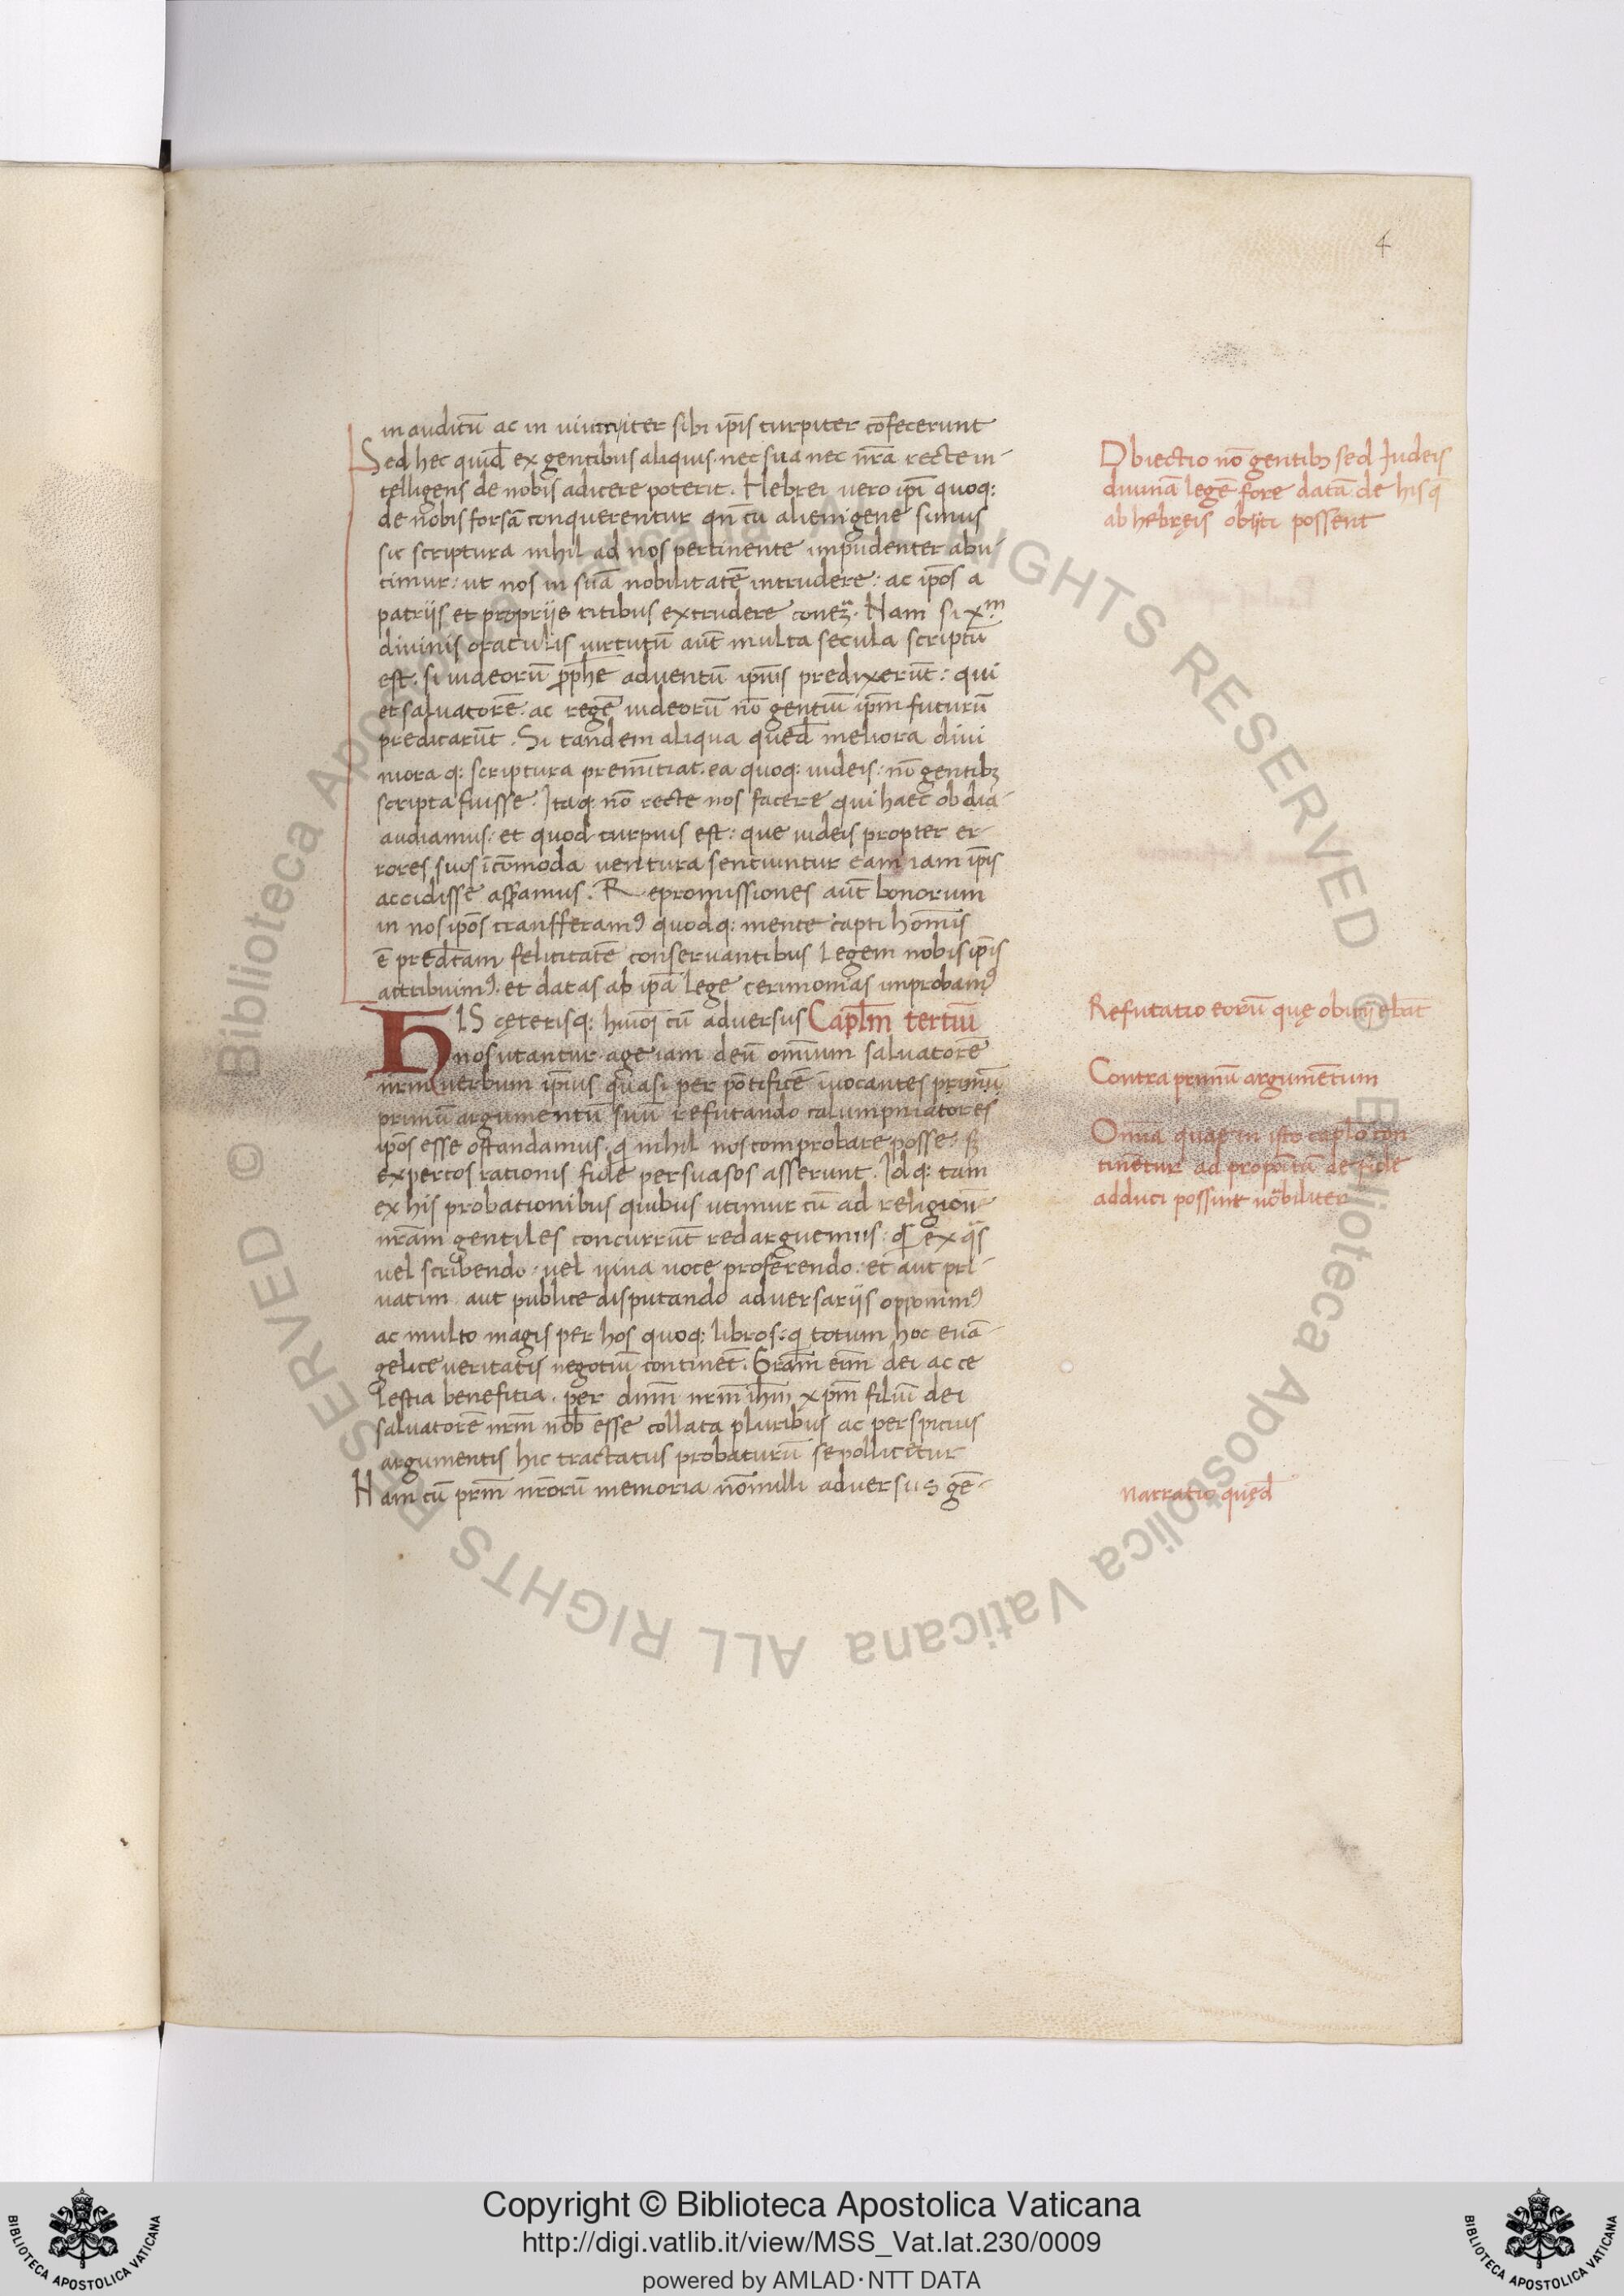 4
in auditū ac in sibi ip̄is turpiter cōfecerunt
Sed hec quid̄ ex gentibus aliquis. nec sua nec nr̄a recte in-
telligens de nobis adicere poterit. Hebrei vero ip̄i quoq:
de nobis forsā conquerentur qn̄ cū alienigene simus
sic scriptura nihil ad nos pertinente impudenter abu-
timur: ut nos in suā nobilitatē intrudere: ac ip̄os a
patrijs et proprijs ritibus extrudere Nam si xᵐ.
divinis oraculis virtutū aut̄ multa secula scriptū
est. si iudeorū pp̄he adventū ip̄ius predixerūt: qui
et salvatorē ac regē iudeorū nō gentiū ip̄m futurū
predicarūt. Si tandem aliqua qued̄ meliora divi
niora q: scriptura prenūtiat. ea quoq: iudeis: nō gentibꝫ
scripta fuisse. Itaq: nō recte nos facere qui haec
audiamus: et quod turpius est: que iudeis propter er-
rores suos īcōmoda ventura sentiuntur eam iam ip̄is
accidisse Repromissiones aut̄ bonorum
in nos ip̄os transfferamꝰ quodq: mente capti homīs
ē pred̄tam felicitatē conservantibus legem nobis ip̄is
attribuimꝰ. et datas ab ip̄a lege cerimonias improbamꝰ
HIS cęterisq: cū adversus Capl̄m tertiū
nos utantur age iam deū omīum salvatorē
nrm̄ verbum ip̄ius quasi per pōtificē invocantes primū
primū argumentū suū refutando calumpniatores
ip̄os esse ostendamus. nihil nos comprobare posse: sꝫ
expertos rationis fide persuasos asserunt. Id q: tam
ex his probationibus quibus utimur cū ad religionē
nr̄am gentiles concurrūt redarguemus: ex q̄s
vel scribendo. vel viva voce proferendo. et aut pri-
vatim aut publice disputando adversarijs opponimꝰ
ac multo magis per hos quoq: libros: totum hoc evā-
gelice veritatis negotiū continēt. Grām eīm dei ac ce
lestia beneficia. per dnm̄ nrm̄ ihm̄ xpm̄ filiū dei
salvatorē nrm̄ nob̄ esse collata pluribus ac perspicuis
argumentis hic tractatus probaturū se pollicetur
Nam cū prm̄ nr̄orū memoria nōnulli adversus gē-
Obiectio nō gentibꝫ sed Iudeis
divinā legē fore datā. de his q̄
ab hebręis obijci possent
Refutatio eorū quę obicijebāt
Contra primū argumētum
Omīa quae in isto capl̄o con-
tinētur ad propoītū de fide
adduci possint nobiliter
Narratio quęd̄
Biblioteca Apostolica Vaticana ALL RIGHTS RESERVED ©
Biblioteca Apostolica Vaticana ALL RIGHTS RESERVED ©
Copyright © Biblioteca Apostolica Vaticana
http://digi.vatlib.it/view/MSS_Vat.lat.230/0009
powered by AMLAD·NTT DATA
BIBLIOTECA APOSTOLICA VATICANA
BIBLIOTECA APOSTOLICA VATICANA